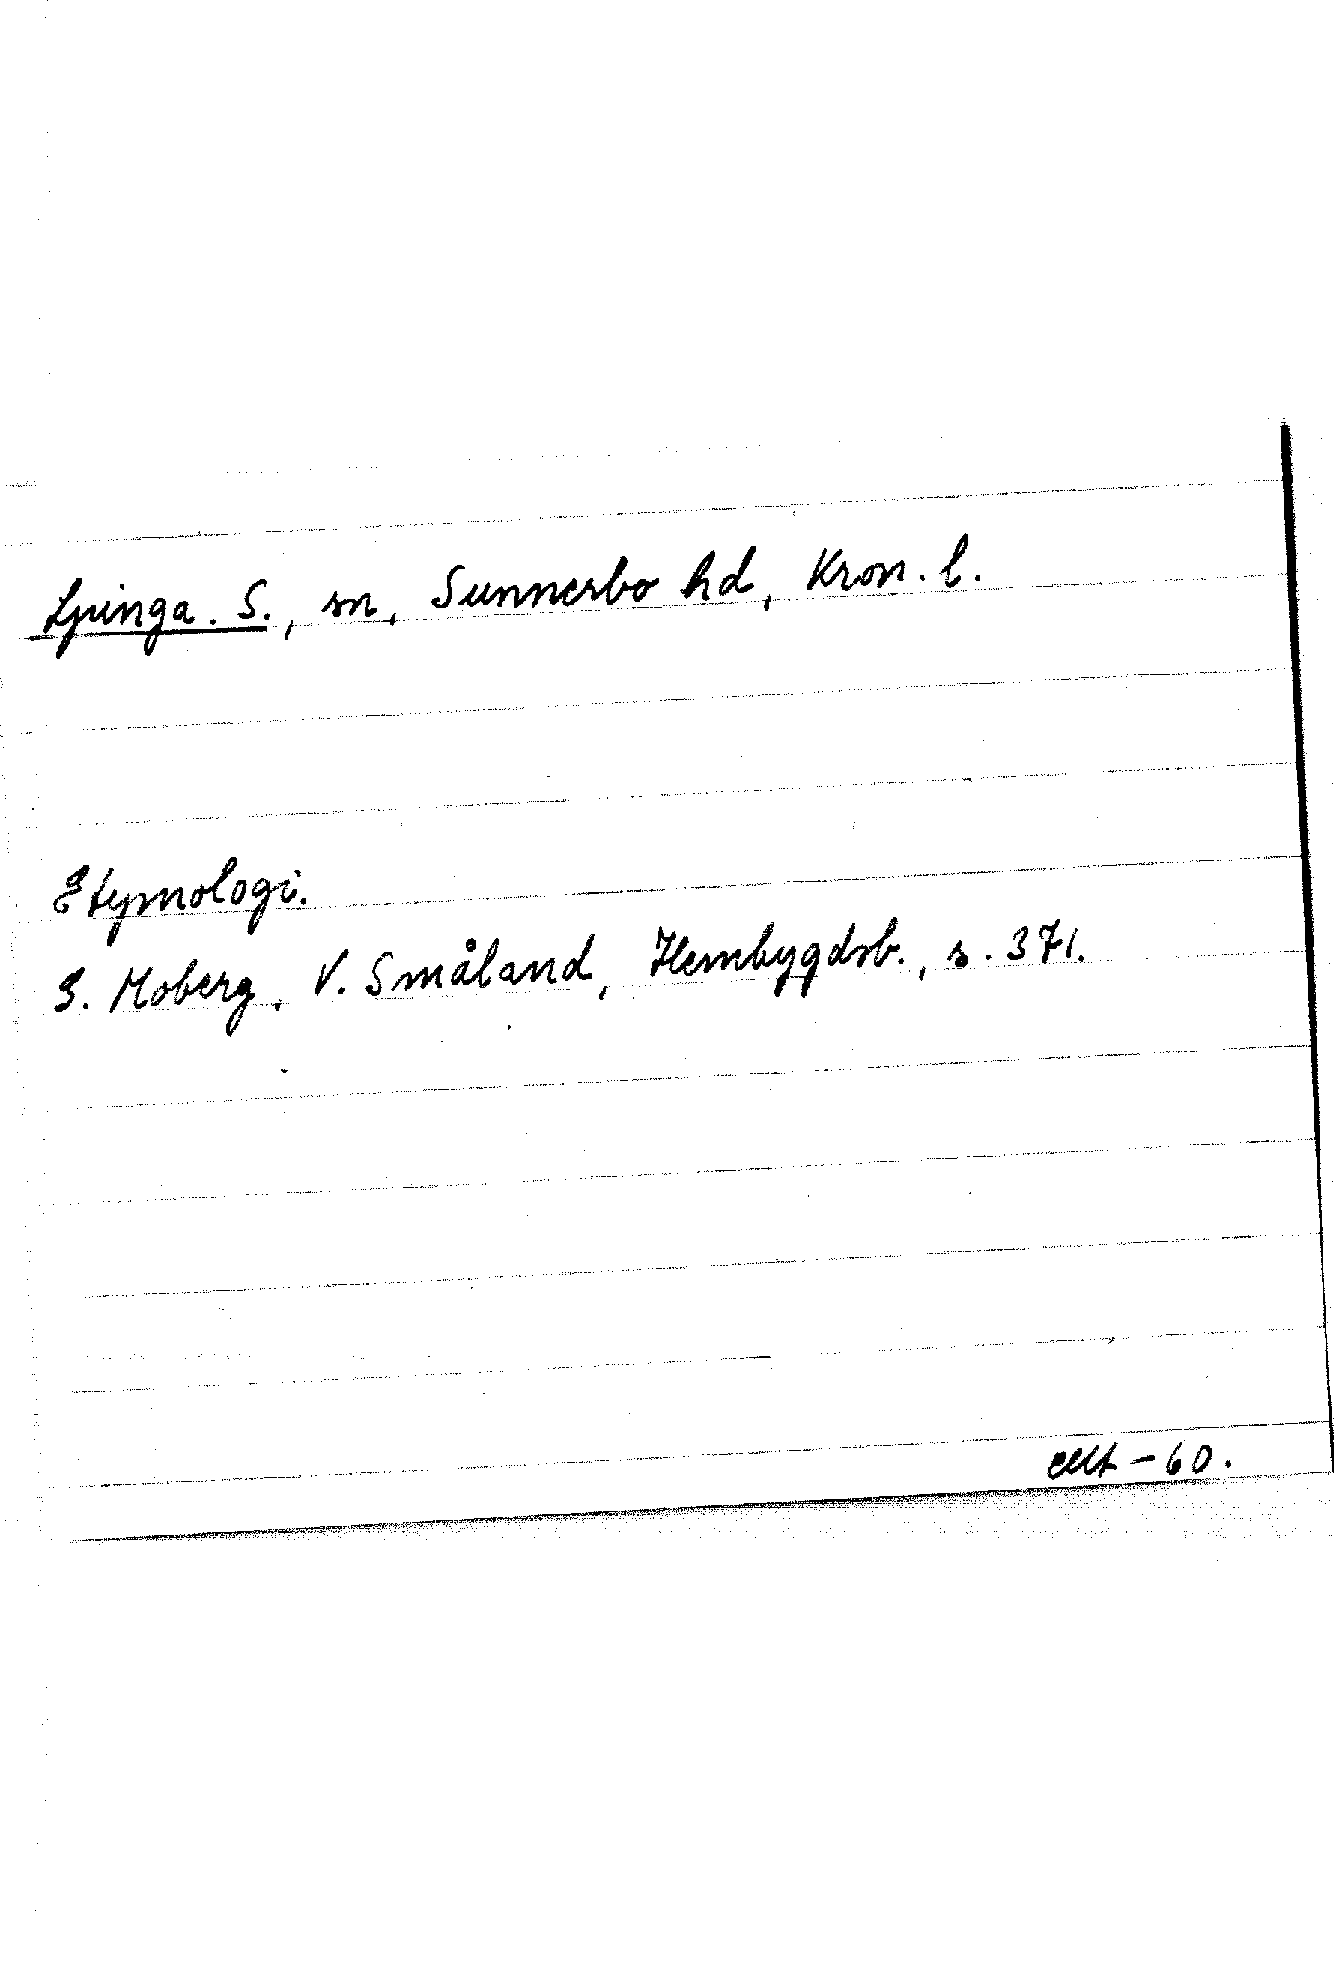 Ljunga. S., sn, Sunnerbo hd, Kron. l.
Etymologi.
G. Moberg, V. Småland, Hembygdsb., s. 371.
-60.